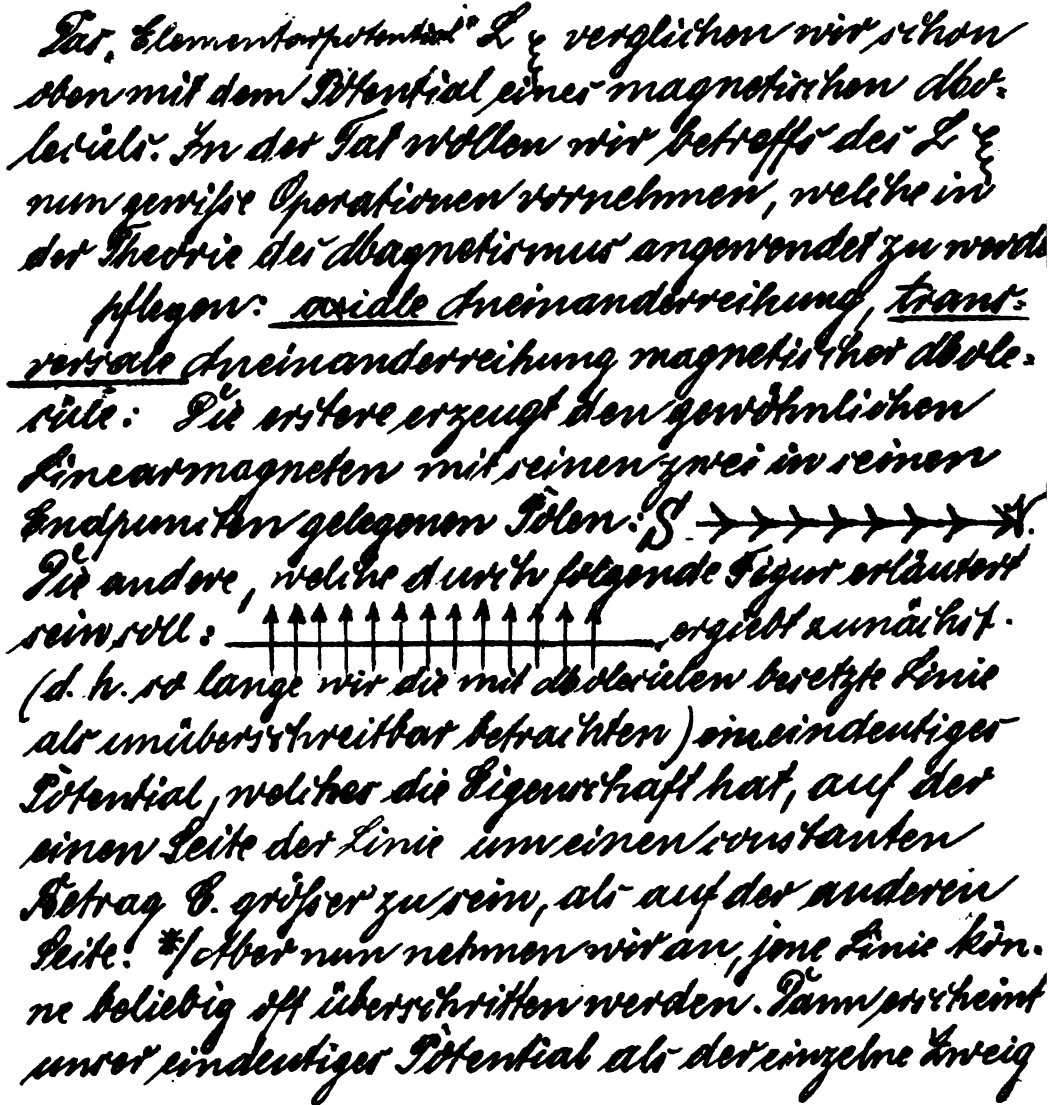 Das „Elementarpotential“ Z ξ verglichen wir schon
oben mit dem Potential eines magnetischen Mo-
lecüls. In der Tat wollen wir betreffs des Z ξ
nun gewisse Operationen vornehmen, welche in
der Theorie des Magnetismus angewendet zu werden
pflegen: axiale Aneinanderreihung, trans-
versale Aneinanderreihung magnetischer Mole-
cüle: Die erstere erzeugt den gewöhnlichen
Linearmagneten mit seinen zwei in seinen
Endpuncten gelegenen Polen: S N.
Die andere, welche durch folgende Figur erläutert
sein soll: , ergiebt zunächst
(d. h. so lange wir die mit Molecülen besetzte Linie
als unüberschreitbar betrachten) ein eindeutiges
Potential, welches die Eigenschaft hat, auf der
einen Seite der Linie um einen constanten
Betrag C. größer zu sein, als auf der anderen
Seite. *) Aber nun nehmen wir an, jene Linie kön-
ne beliebig oft überschritten werden. Dann erscheint
unser eindeutiges Potential als der einzelne Zweig